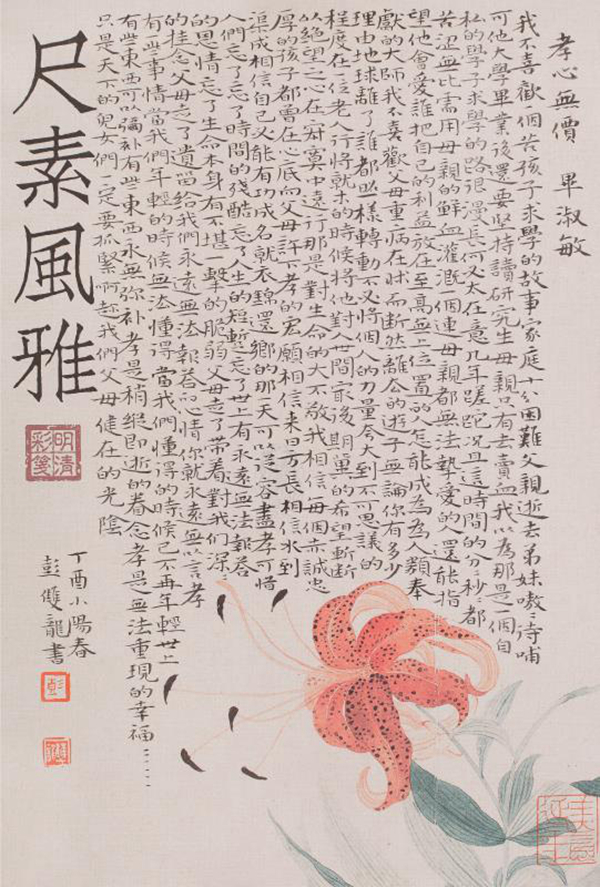 孝心無價 畢淑敏
我不喜歡個苦孩子求學的故事家庭十分困難父親逝去弟妹嗷嗷待哺
可他大學畢業後還要堅持讀研究生母親只有去賣血我以為那是一個自
私的學子求學的路很漫長何必太在意几年蹉跎况且這時間的分分秒秒都
苦澀無比需用母親的鮮血灌溉個連母親都無法摯愛的人還能指
望他會愛誰把自己的利益放在至高無上位置的人怎能成為為人類奉
獻的大師我不喜歡父母重病在牀而断然離去的遊子無論你有多少
理由地球離了誰都照樣轉動不必將個人的力量夸大到不可思議的
程度在一位老人行將就木的時候將他對人世間最後期冀的希望斬断
以絕望之心在寂寞中遠行那是對生命的大不敬我相信每個赤誠忠
厚的孩子都曾在心底向父母許下孝的宏願相信来日方長相信水到
渠成相信自己必能有功成名就衣錦還鄉的那一天可以從容盡孝可惜
人們忘了忘了時間的殘酷忘了人生的短暫忘了世上有永遠無法報答
的恩情忘了生命本身有不堪一擊的脆弱父母走了帶着對我們深深
的挂念父母走了遺留給我們永遠無法報荅的心情你就永遠無以言孝
有一些事情當我們年輕的時候無法懂得當我們懂得的時候已不再年輕世上
有些東西可以弥補有些東西永無弥補孝是稍縱即逝的眷念孝是無法重現的幸福……
只是天下的兒女們一定要抓緊啊趁我們父母健在的光陰
尺素風雅
明清彩箋
丁酉小陽春
彭雙龍書
彭